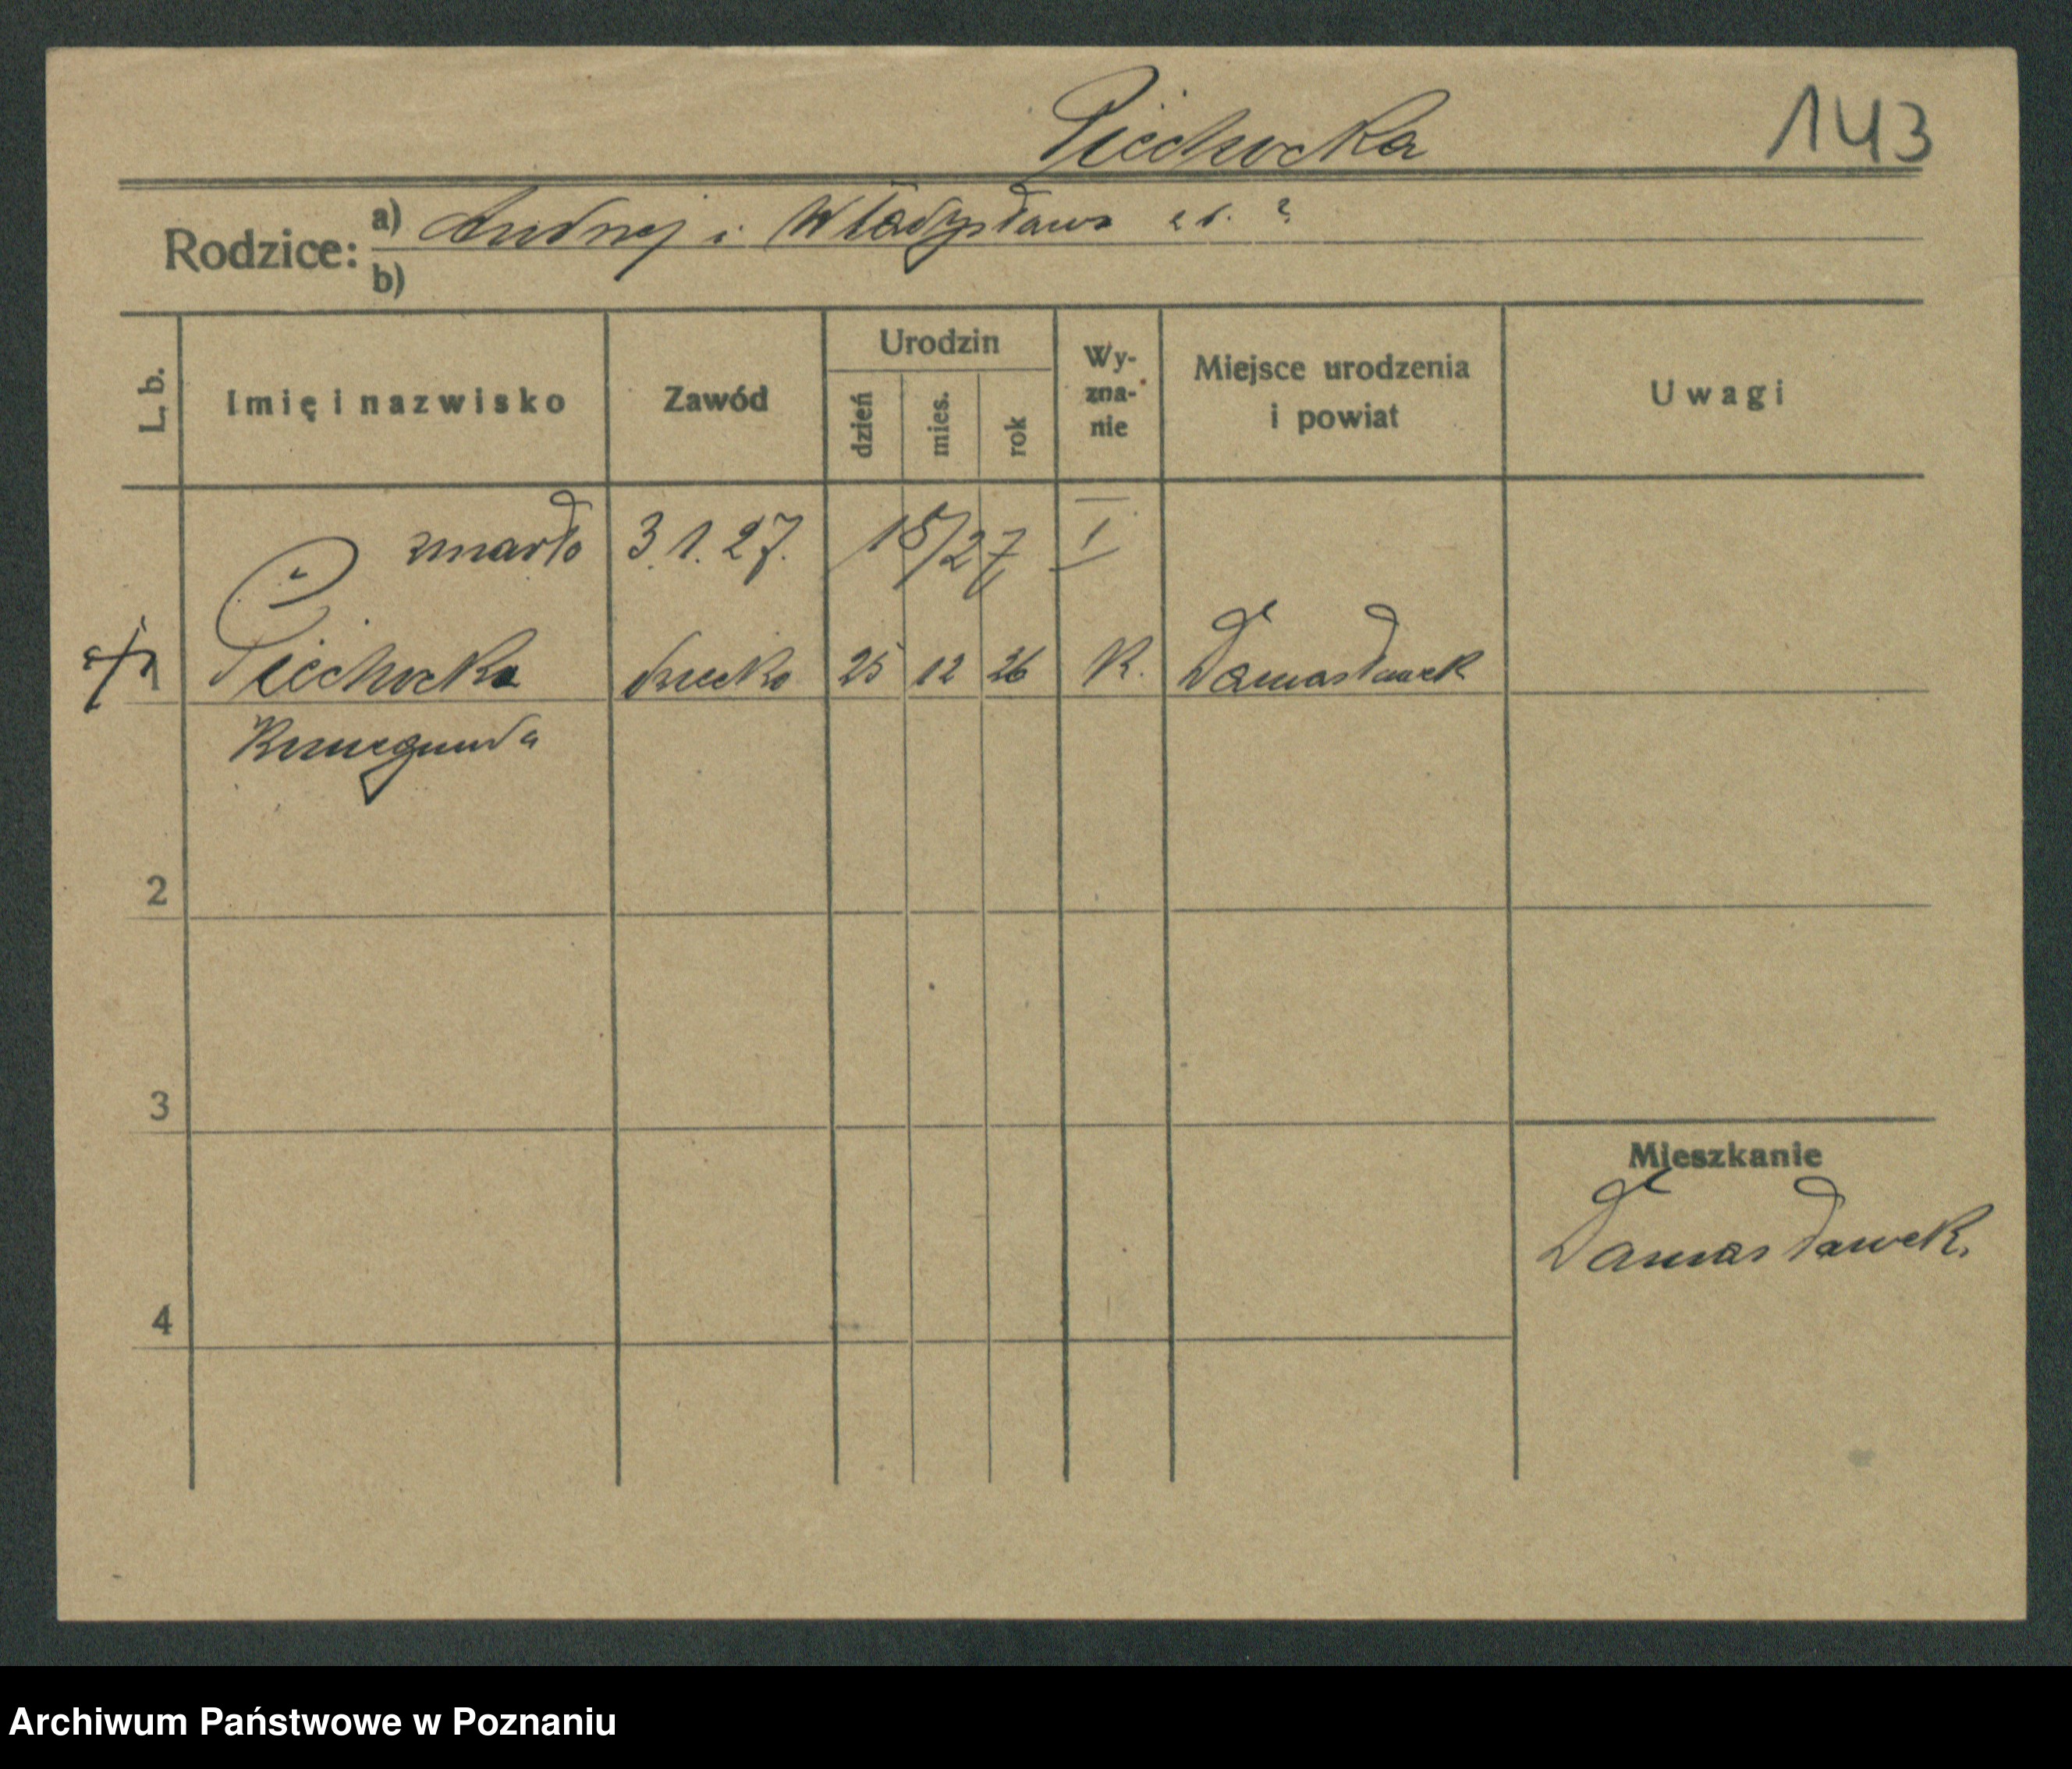 Piechocka 143
Rodzice: a) Andrzej i Władysława z d. ?
b)
L. b. Imię i nazwisko Zawód Urodzin dzień mies. rok Wy-zna-nie Miejsce urodzenia i powiat Uwagi
zmarło 3.1.27. 15/27 I
1 Piechocka dziecko 25 12 26 K. Damasławek
Kunegunda
2
3
Mieszkanie
Damasławek.
4
Archiwum Państwowe w Poznaniu